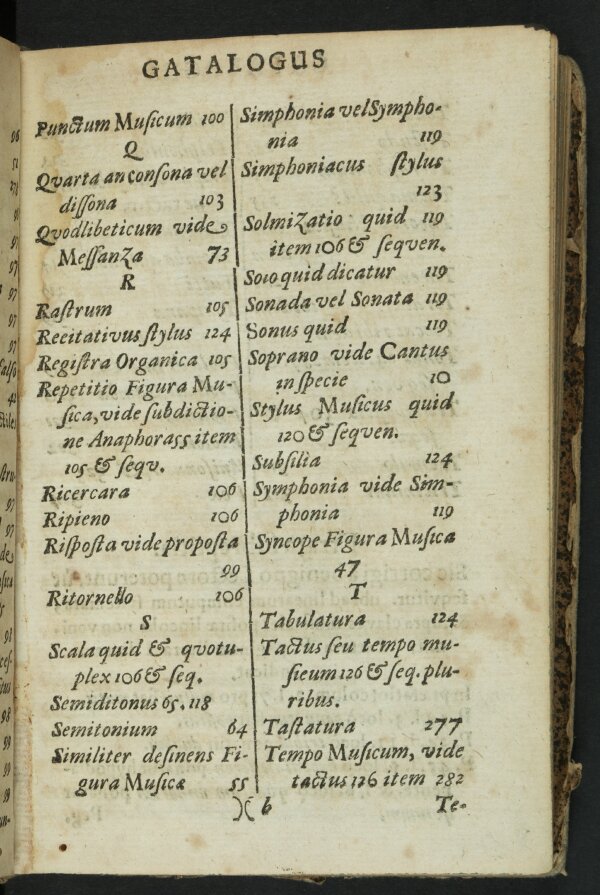 GATALOGUS
Punctum Musicum 100
Q
Qvarta an consona vel
dissona 103
Qvodlibeticum vide
Messanza 73
R
Rastrum 105
Recitativus stylus 124
Registra Organica 105
Repetitio Figura Mu-
sica, vide subdictio-
ne Anaphora 55 item
105 & seqv.
Ricercara 106
Ripieno 106
Risposta vide proposta
99
Ritornello 106
S
Scala quid & qvotu-
plex 106 & seq.
Semiditonus 65. 118
Semitonium 64
Similiter desinens Fi-
gura Musicæ 55
Simphonia vel Sympho-
nia 119
Simphoniacus stylus
123
Solmizatio quid 119
item 106 & seqven.
Solo quid dicatur 119
Sonada vel Sonata 119
Sonus quid 119
Soprano vide Cantus
in specie 10
Stylus Musicus quid
120 & seqven.
Subsilia 124
Symphonia vide Sim-
phonia 119
Syncope Figura Musica
47
T
Tabulatura 124
Tactus seu tempo mu-
sieum 126 & seq. plu-
ribus.
Tastatura 277
Tempo Musicum, vide
tactus 126 item 282
)( b Te-